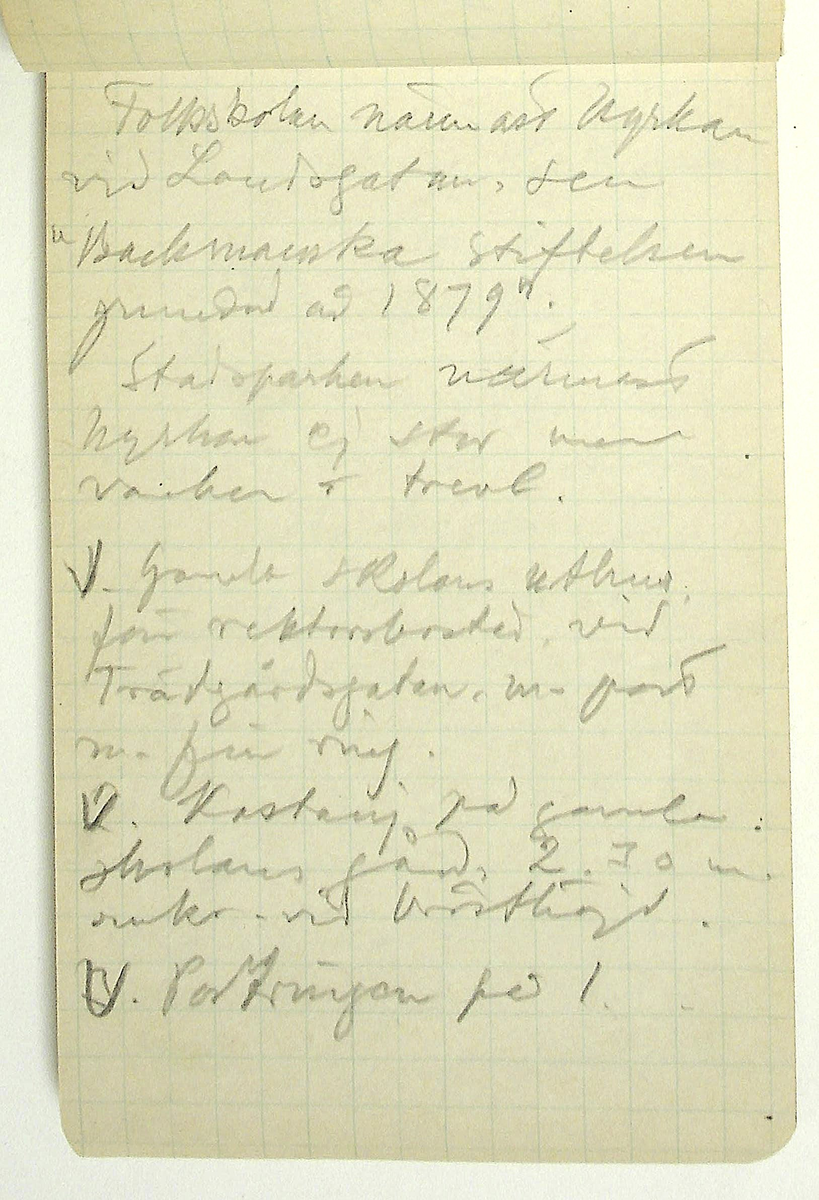 Folkskolan närmast kyrkan
vid Landsgatan, den
"Backmanska stiftelsen
grundad år 1879".
Stadsparken närmast
kyrkan ej stor men
vacker o trevl.
V. Gamla skolans uthus,
förr rektorsbostad, vid
Trädgårdsgatan, m. port
m. fin ring.
V. Kastanj på gamla
skolans gård, 2.30 m.
omkr. vid brösthöjd.
V. Portringen på 1.